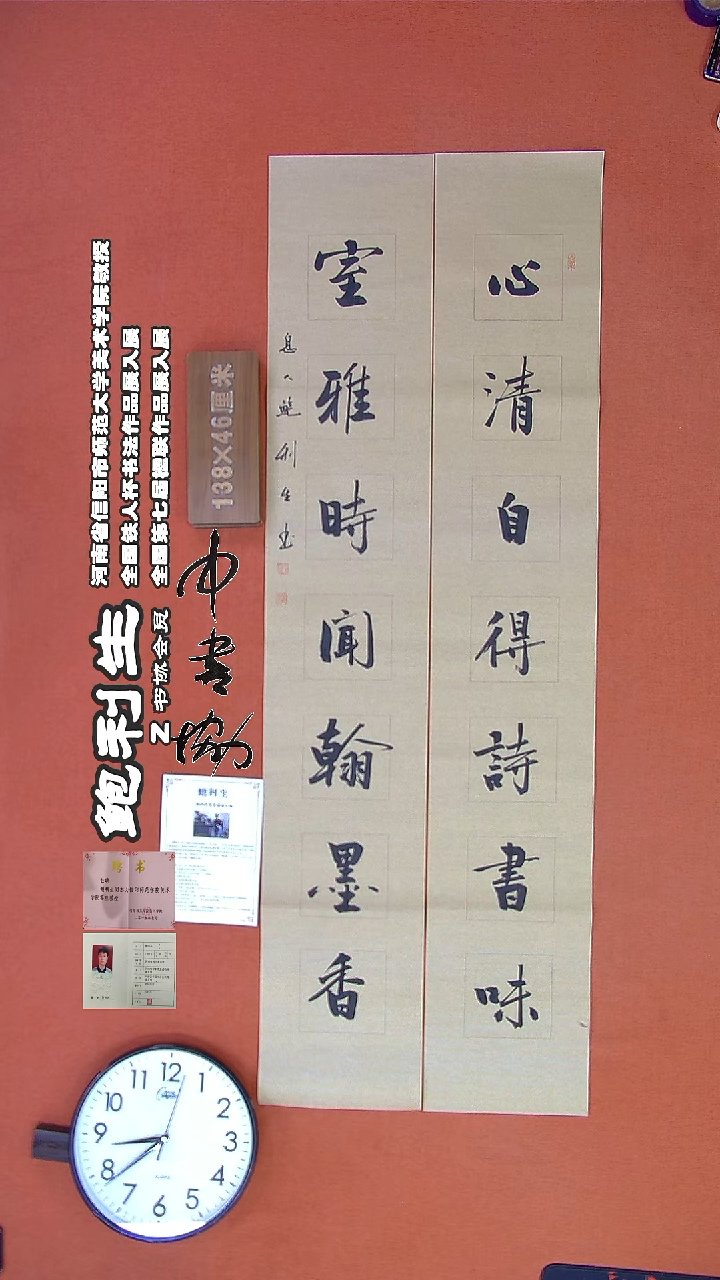 心清自得詩書味
室雅時聞翰墨香
息人鮑利生書
138×46厘米
河南省信阳市师范大学美术学院教授
全国铁人杯书法作品展入展
全国第七届楹联作品展入展
鲍利生
Z 书协会员
中書協
鲍利生
聘书
12
1
2
3
4
5
6
7
8
9
10
11